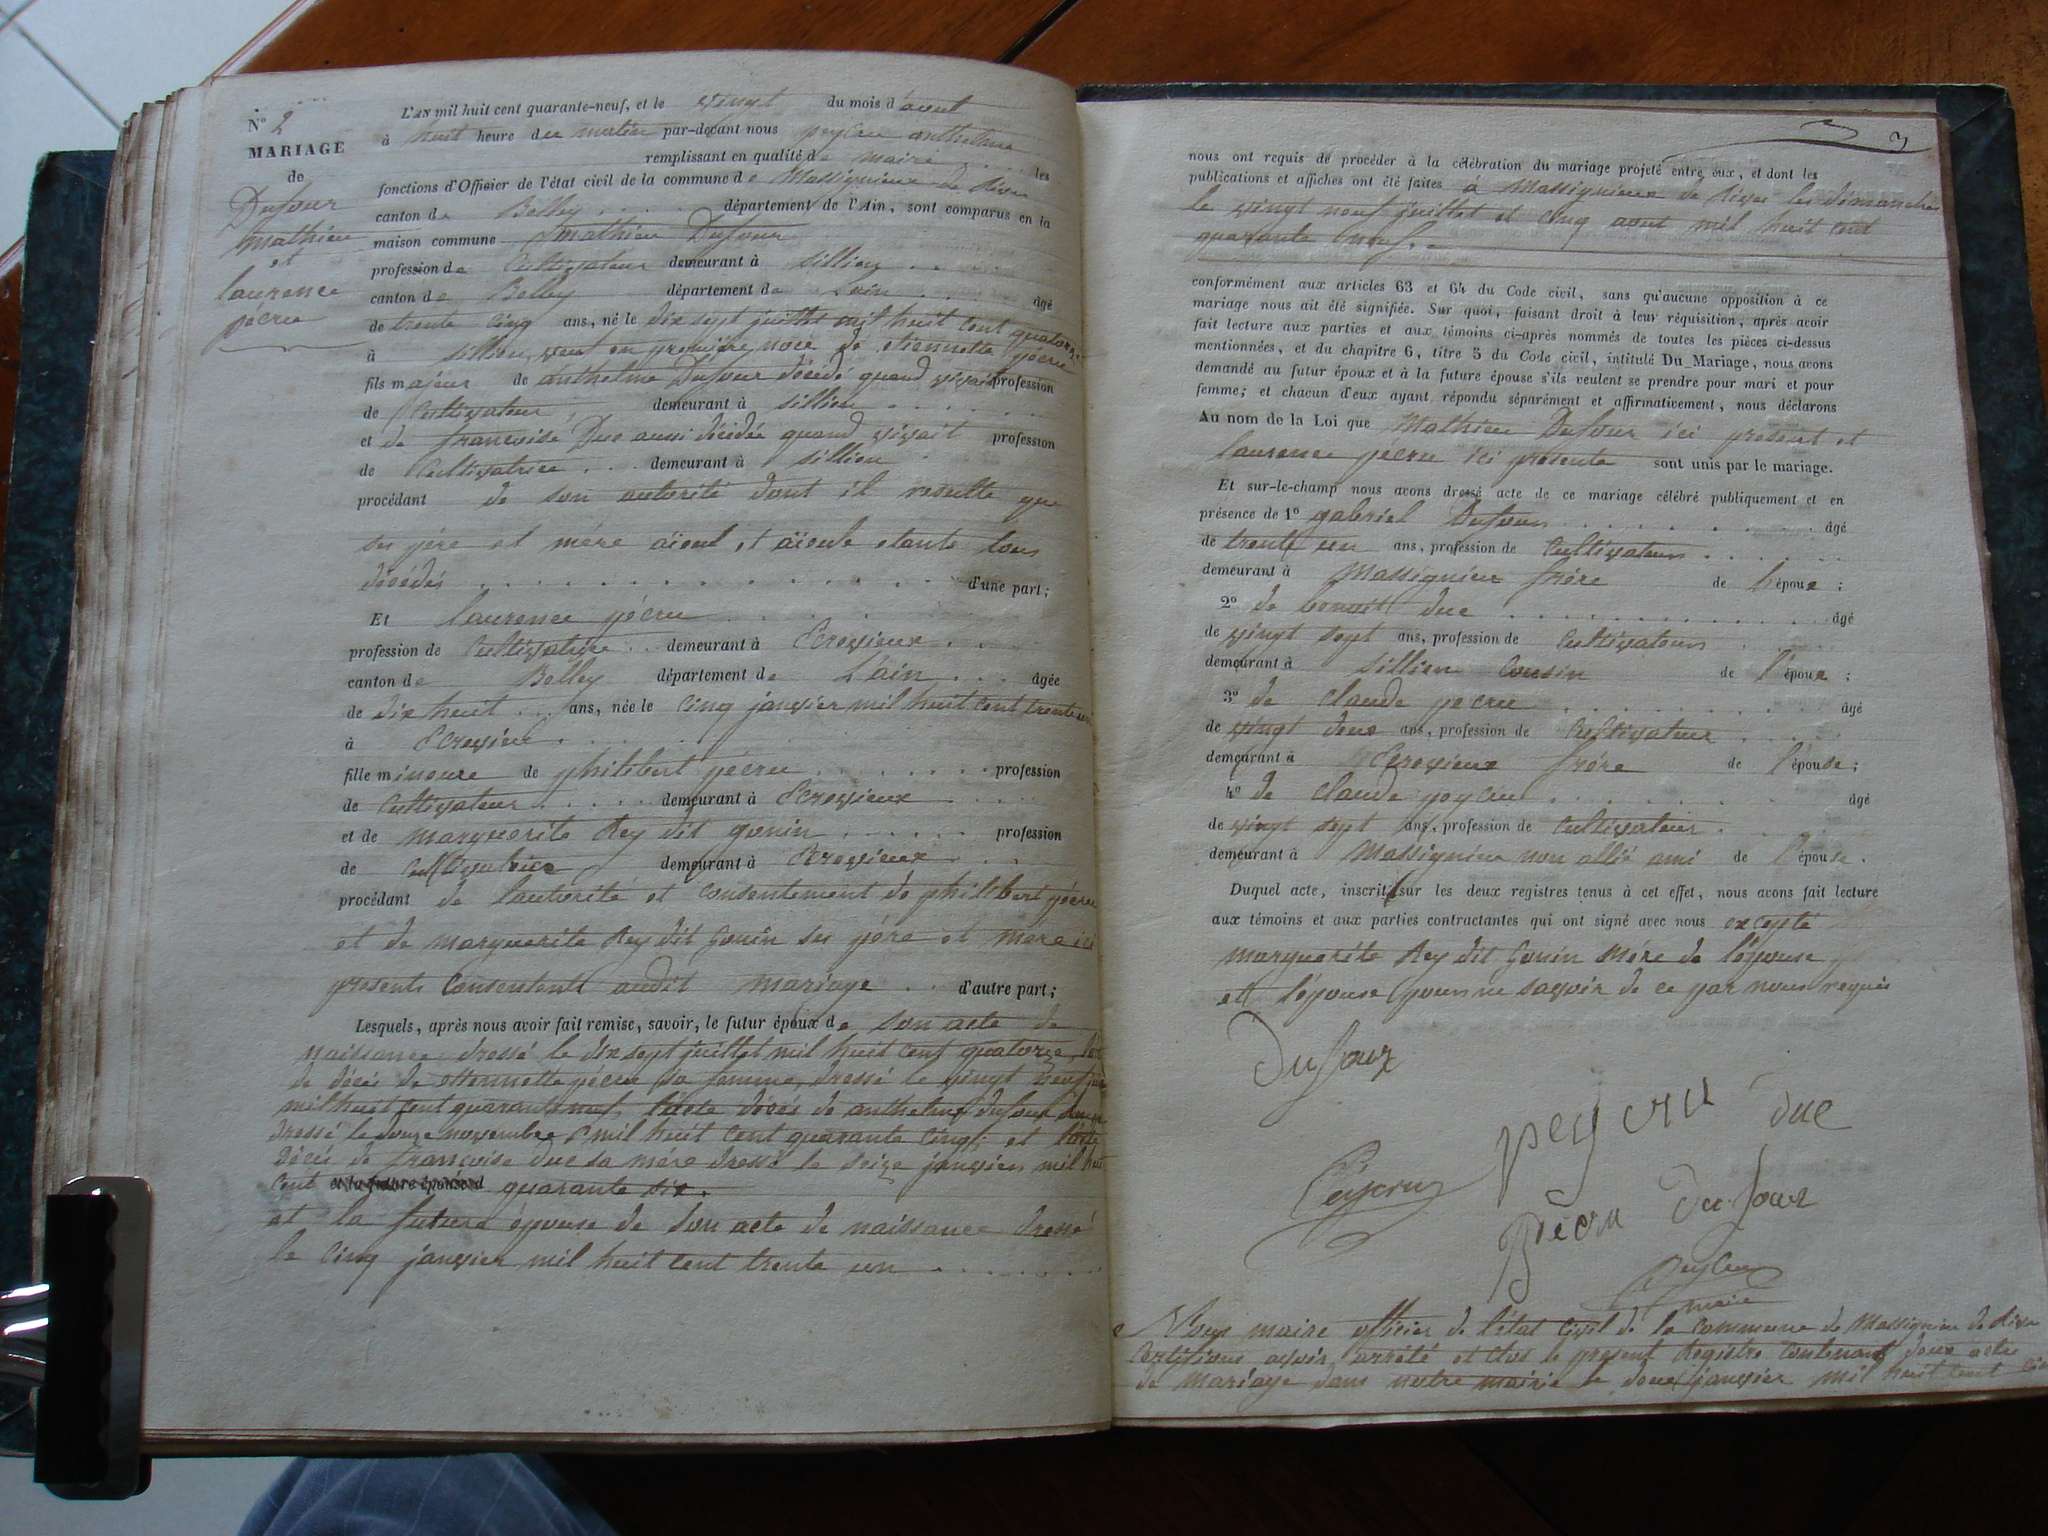 N° 2
MARIAGE
de
Dufour
mathieu
et
laurence
pécru
L'AN mil huit cent quarante-neuf, et le vingt du mois d'aout
à huit heure du matin par-devant nous peycru anthelme
remplissant en qualité de maire les
fonctions d'Officier de l'état civil de la commune de Massignieu de Rives
canton de Belley département de l'Ain, sont comparus en la
maison commune mathieu Dufour
profession de Cultivateur demeurant à sillieu
canton de Belley département de Lain âgé
de trente cinq ans, né le dix sept juillet mil huit cent quatorze
à sillieu, veuf en première noce de etiennette pécru
fils majeur de anthelme Dufour décédé quand vivait profession
de Cultivateur demeurant à sillieu
et de françoise Duc aussi décédée quand vivait profession
de Cultivatrice demeurant à sillieu
procédant de son autorité dont il resulte que
ses père et mère aïeul et aïeule etants tous
décédés d'une part;
Et laurence pécru
profession de Cultivatrice demeurant à Ecrevieux
canton de Belley département de L'ain âgée
de dix huit ans, née le Cinq janvier mil huit cent trente un
à Ecrevieu
fille mineure de philibert pécru profession
de Cultivateur demeurant à Ecrevieux
et de marguerite Rey dit gonin profession
de Cultivatrice demeurant à Ecrevieux
procédant de lautorité et consentement de philibert pécru
et de marguerite Rey dit Gonin ses père et mère ici
presents Consentents audit mariage d'autre part;
Lesquels, après nous avoir fait remise, savoir, le futur époux de son acte de
naissance dressé le dix sept juillet mil huit cent quatorze
de décès de etiennette pécru sa femme, dressé le vingt neuf
mil huit cent quarante neuf, l'acte décès de anthelme dufour
dressé le onze novembre mil huit cent quarante cinq; et l'acte
décès de françoise duc sa mére dressé le seize janvier mil huit
cent et la future épouse d quarante six.
et la future épouse de son acte de naissance dressé
le cinq janvier mil huit cent trente un
3
nous ont requis de procéder à la célébration du mariage projeté entre eux, et dont les
publications et affiches ont été faites à Massignieu de Rives les dimanches
le vingt neuf juillet et cinq aout mil huit cent
quarante neuf.
conformément aux articles 63 et 64 du Code civil, sans qu'aucune opposition à ce
mariage nous ait été signifiée. Sur quoi, faisant droit à leur réquisition, après avoir
fait lecture aux parties et aux témoins ci-après nommés de toutes les pièces ci-dessus
mentionnées, et du chapitre 6, titre 5 du Code civil, intitulé Du Mariage, nous avons
demandé au futur époux et à la future épouse s'ils veulent se prendre pour mari et pour
femme; et chacun d'eux ayant répondu séparément et affirmativement, nous déclarons
Au nom de la Loi que Mathieu Dufour ici présent et
laurence pécru ici présente sont unis par le mariage.
Et sur-le-champ nous avons dressé acte de ce mariage célébré publiquement et en
présence de 1° gabriel Dufour âgé
de trente un ans, profession de Cultivateur
demeurant à Massignieu frère de l'époux;
2° de benoit duc âgé
de vingt sept ans, profession de Cultivateur
demeurant à sillieu Cousin de l'époux;
3° de claude pécru âgé
de vingt deux ans, profession de Cultivateur
demeurant à Ecrevieux frère de l'épouse;
4° de claude peycru âgé
de vingt sept ans, profession de Cultivateur
demeurant à Massignieu non allié ami de l'épouse.
Duquel acte, inscrit sur les deux registres tenus à cet effet, nous avons fait lecture
aux témoins et aux parties contractantes qui ont signé avec nous excepté
marguerite Rey dit Gonin mére de l'épouse
et l'épouse pour ne savoir de ce par nous requis
Dufour
peycru duc
Peycru
Pècru Dufour
Peycru
maire
Nous maire officier de l'état civil de la commune de Massignieu de Rives
Certifions avoir arrêté et clos le present Registre contenant deux actes
de Mariage dans notre mairie le deux janvier mil huit cent